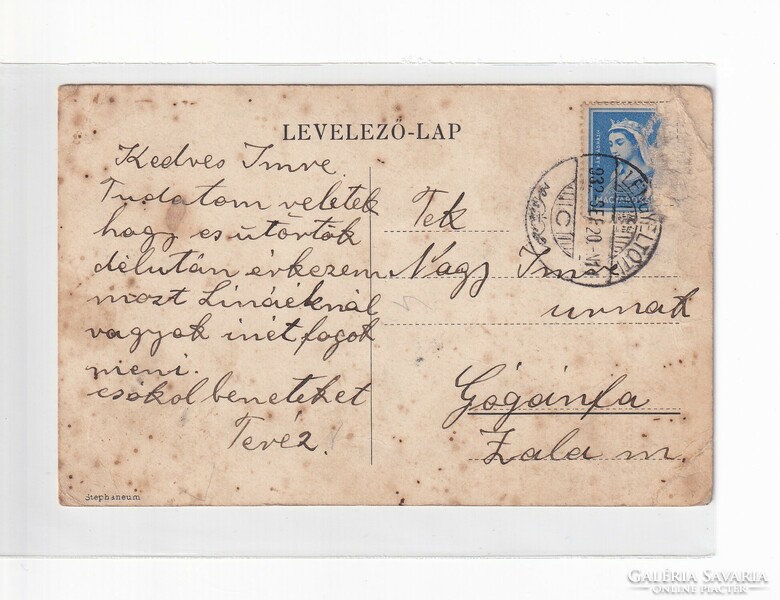 LEVELEZŐ-LAP
Kedves Imre
Tudatom veletek
hogy csütörtök
délután érkezem
most Lináéknál
vagyok inét fogok
meni.
csókol beneteket
Teréz.
Tek
Nagy Imre
urnak
Gógánfa
Zala m.
Stephaneum
LENGYELTÓTI
932 SEP 20
C
GALÉRIA SAVARIA
ONLINE PIACTÉR